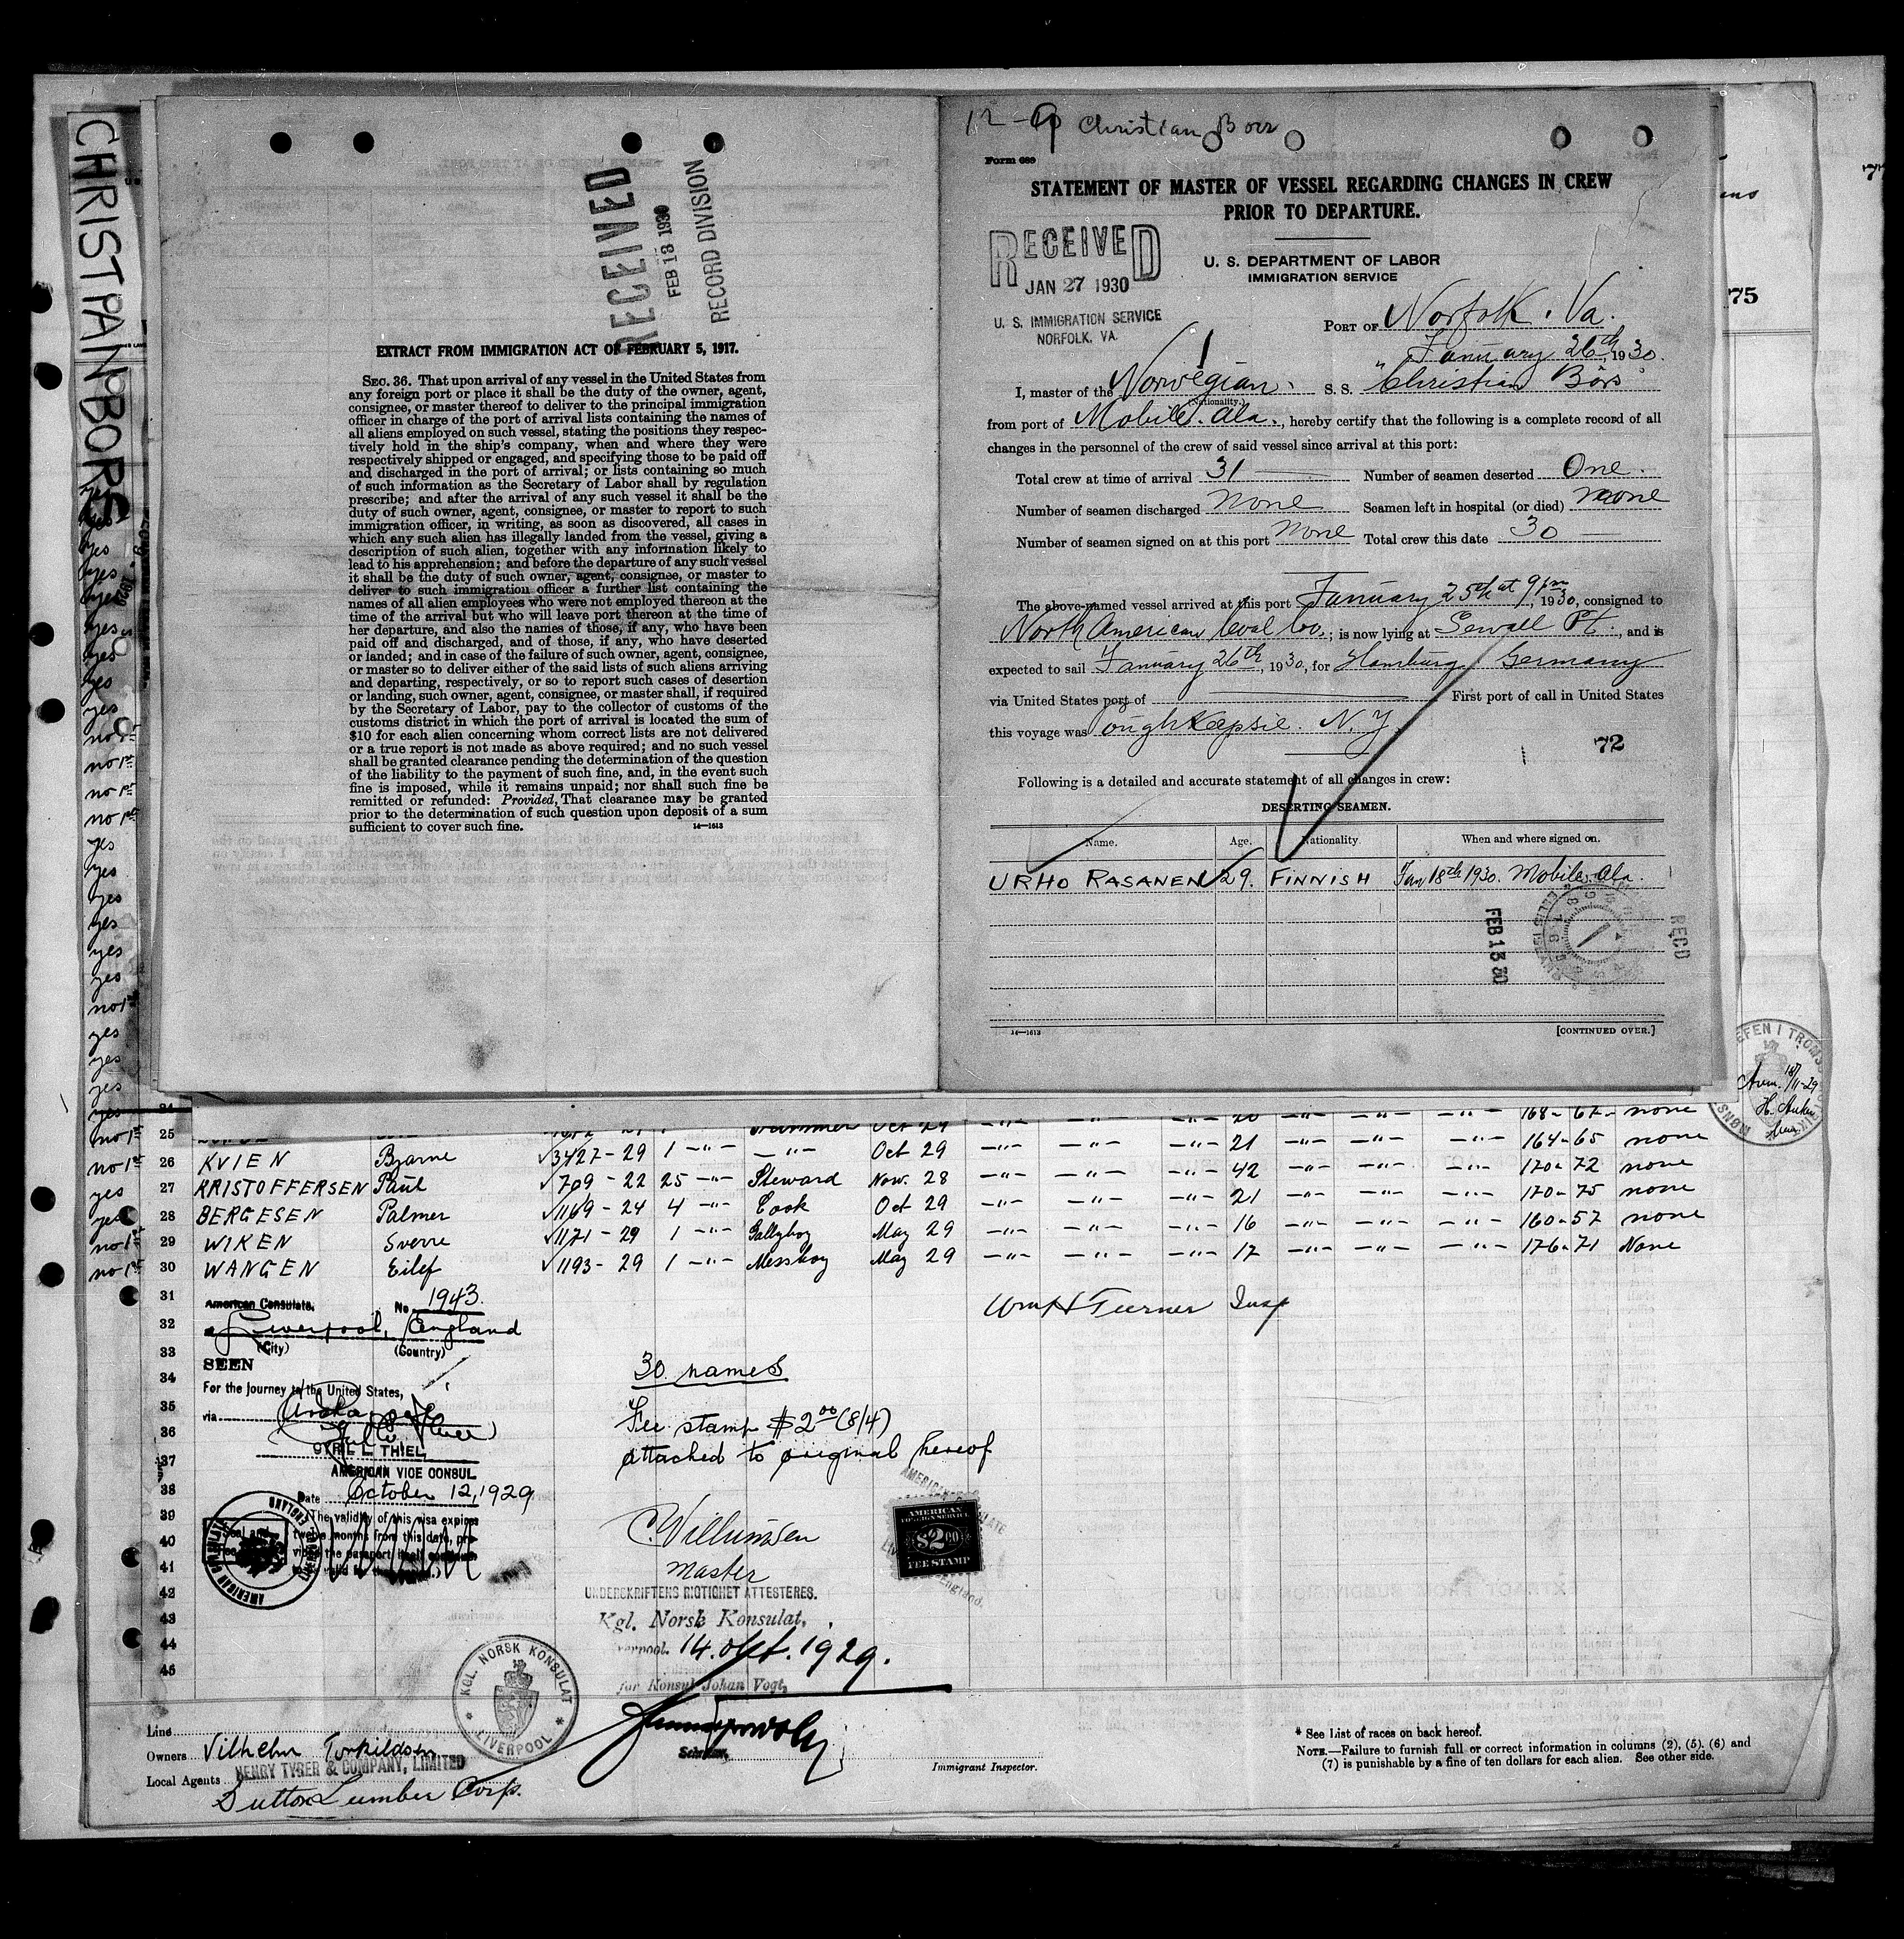 CHRISTIAN BORS
RECEIVED
FEB 13 1930
RECORD DIVISION
EXTRACT FROM IMMIGRATION ACT OF FEBRUARY 5, 1917.
SEC. 36. That upon arrival of any vessel in the United States from
any foreign port or place it shall be the duty of the owner, agent,
consignee, or master thereof to deliver to the principal immigration
officer in charge of the port of arrival lists containing the names of
all aliens employed on such vessel, stating the positions they respec-
tively hold in the ship's company, when and where they were
respectively shipped or engaged, and specifying those to be paid off
and discharged in the port of arrival; or lists containing so much
of such information as the Secretary of Labor shall by regulation
prescribe; and after the arrival of any such vessel it shall be the
duty of such owner, agent, consignee, or master to report to such
immigration officer, in writing, as soon as discovered, all cases in
which any such alien has illegally landed from the vessel, giving a
description of such alien, together with any information likely to
lead to his apprehension; and before the departure of any such vessel
it shall be the duty of such owner, agent, consignee, or master to
deliver to such immigration officer a further list containing the
names of all alien employees who were not employed thereon at the
time of the arrival but who will leave port thereon at the time of
her departure, and also the names of those, if any, who have been
paid off and discharged, and of those, if any, who have deserted
or landed; and in case of the failure of such owner, agent, consignee,
or master so to deliver either of the said lists of such aliens arriving
and departing, respectively, or so to report such cases of desertion
or landing, such owner, agent, consignee, or master shall, if required
by the Secretary of Labor, pay to the collector of customs of the
customs district in which the port of arrival is located the sum of
$10 for each alien concerning whom correct lists are not delivered
or a true report is not made as above required; and no such vessel
shall be granted clearance pending the determination of the question
of the liability to the payment of such fine, and, in the event such
fine is imposed, while it remains unpaid; nor shall such fine be
remitted or refunded: Provided, That clearance may be granted
prior to the determination of such question upon deposit of a sum
sufficient to cover such fine.
14—1613
Christian Bors
Form 689
STATEMENT OF MASTER OF VESSEL REGARDING CHANGES IN CREW
PRIOR TO DEPARTURE.
RECEIVED
JAN 27 1930
U. S. IMMIGRATION SERVICE
NORFOLK, VA.
U. S. DEPARTMENT OF LABOR
IMMIGRATION SERVICE
75
PORT OF Norfolk. Va.
January 26th, 1930.
I, master of the Norwegian. S. S. "Christian Börs"
(Nationality.)
from port of Mobile. Ala., hereby certify that the following is a complete record of all
changes in the personnel of the crew of said vessel since arrival at this port:
Total crew at time of arrival 31 Number of seamen deserted One.
Number of seamen discharged None Seamen left in hospital (or died) none
Number of seamen signed on at this port None Total crew this date 30
The above-named vessel arrived at this port January 25th at 9 pm, 1930, consigned to
North American Coal Co.; is now lying at Sewall Pt, and is
expected to sail January 26th, 1930, for Hamburg Germany
via United States port of First port of call in United States
this voyage was oughkeepsie. N. Y.
72
Following is a detailed and accurate statement of all changes in crew:
DESERTING SEAMEN.
Name. Age. Nationality When and where signed on.
URHO RASANEN 29. FINNISH Jan 18th 1930. Mobile Ala.
FEB 13 30
RECD
14—1613
[CONTINUED OVER.]
24 20 168-67- none
25 Oct 29
no 1st 26 KVIEN Bjarne 3427-29 1 -"- -"- Oct 29 -"- -"- -"- 21 -"- -"- -"- 164-65 none
yes 27 KRISTOFFERSEN Paul 709-22 25 -"- Steward Nov. 28 -"- -"- -"- 42 -"- -"- -"- 170-72 none
yes 28 BERGESEN Palmer 1169-24 4 -"- Cook Oct 29 -"- -"- -"- 21 -"- -"- -"- 170-75 none
no 1st 29 WIKEN Sverre 1171-29 1 -"- Gallyboy May 29 -"- -"- -"- 16 -"- -"- -"- 160-57 none
no 1st 30 WANGEN Eilef 1193-29 1 -"- Messboy May 29 -"- -"- -"- 17 -"- -"- -"- 176-71 None
31
American Consulate. No. 1943.
Wm H Turner Insp
32
Liverpool, England
(City) (Country)
33
SEEN
34
30 names
For the Journey to the United States,
35
via
Fee stamp $2.00 (8/4)
36
attached to original hereof
CYRIL L. THIEL
37
AMERICAN VICE CONSUL
38
Date October 12, 1929
39
The validity of this visa expires
twelve months from this date, pro-
40
vided the passport itself
41
42
43
44
45
Willumsen
Master
AMERICAN
FOREIGN SERVICE
$2.00
FEE STAMP
UNDERSKRIFTENS RIGTIGHET ATTESTERES.
Kgl. Norsk Konsulat,
14. Okt. 1929.
for Konsul Johan Vogt,
KGL. NORSK KONSULAT
LIVERPOOL
Line
Owners Vilhelm Torkildsen
HENRY TYRER & COMPANY, LIMITED
Local Agents
Sutton Lumber Corp.
Immigrant Inspector.
* See List of races on back hereof.
NOTE.—Failure to furnish full or correct information in columns (2), (5), (6) and
(7) is punishable by a fine of ten dollars for each alien. See other side.